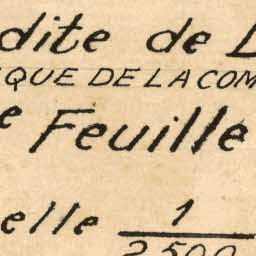 dite de L
QUE DE LA COM
e Feuille
elle 1/2500